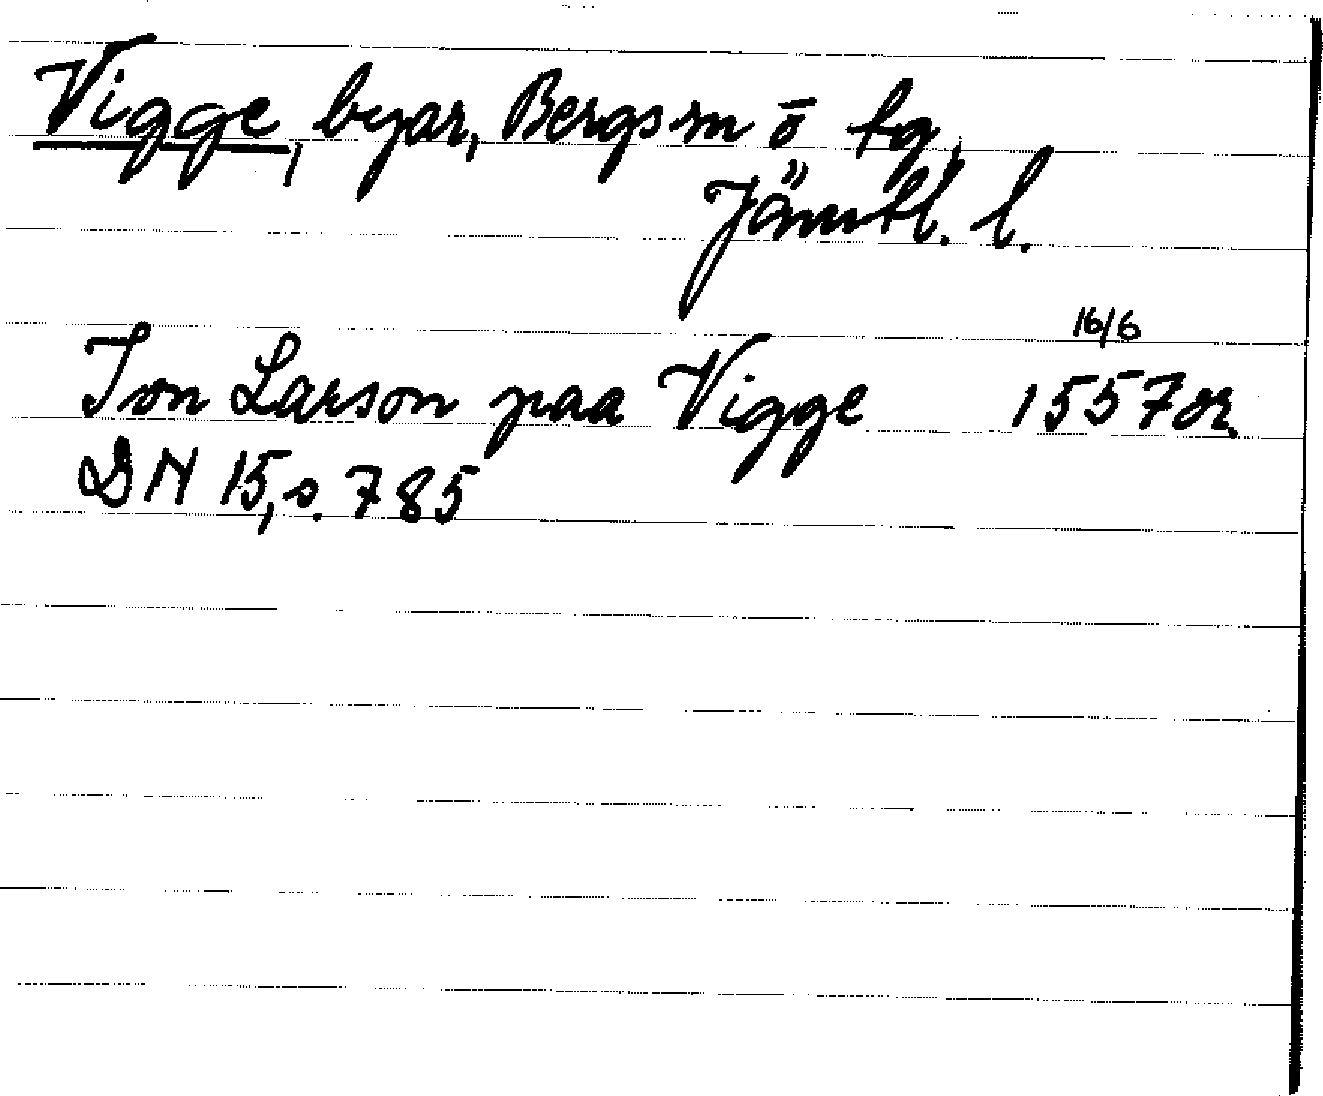 Vigge, byar, Bergs sn ö tg,
Jämtl. l.
16/6
Jon Larson paa Vigge 1557 or.
DN 15, s. 785